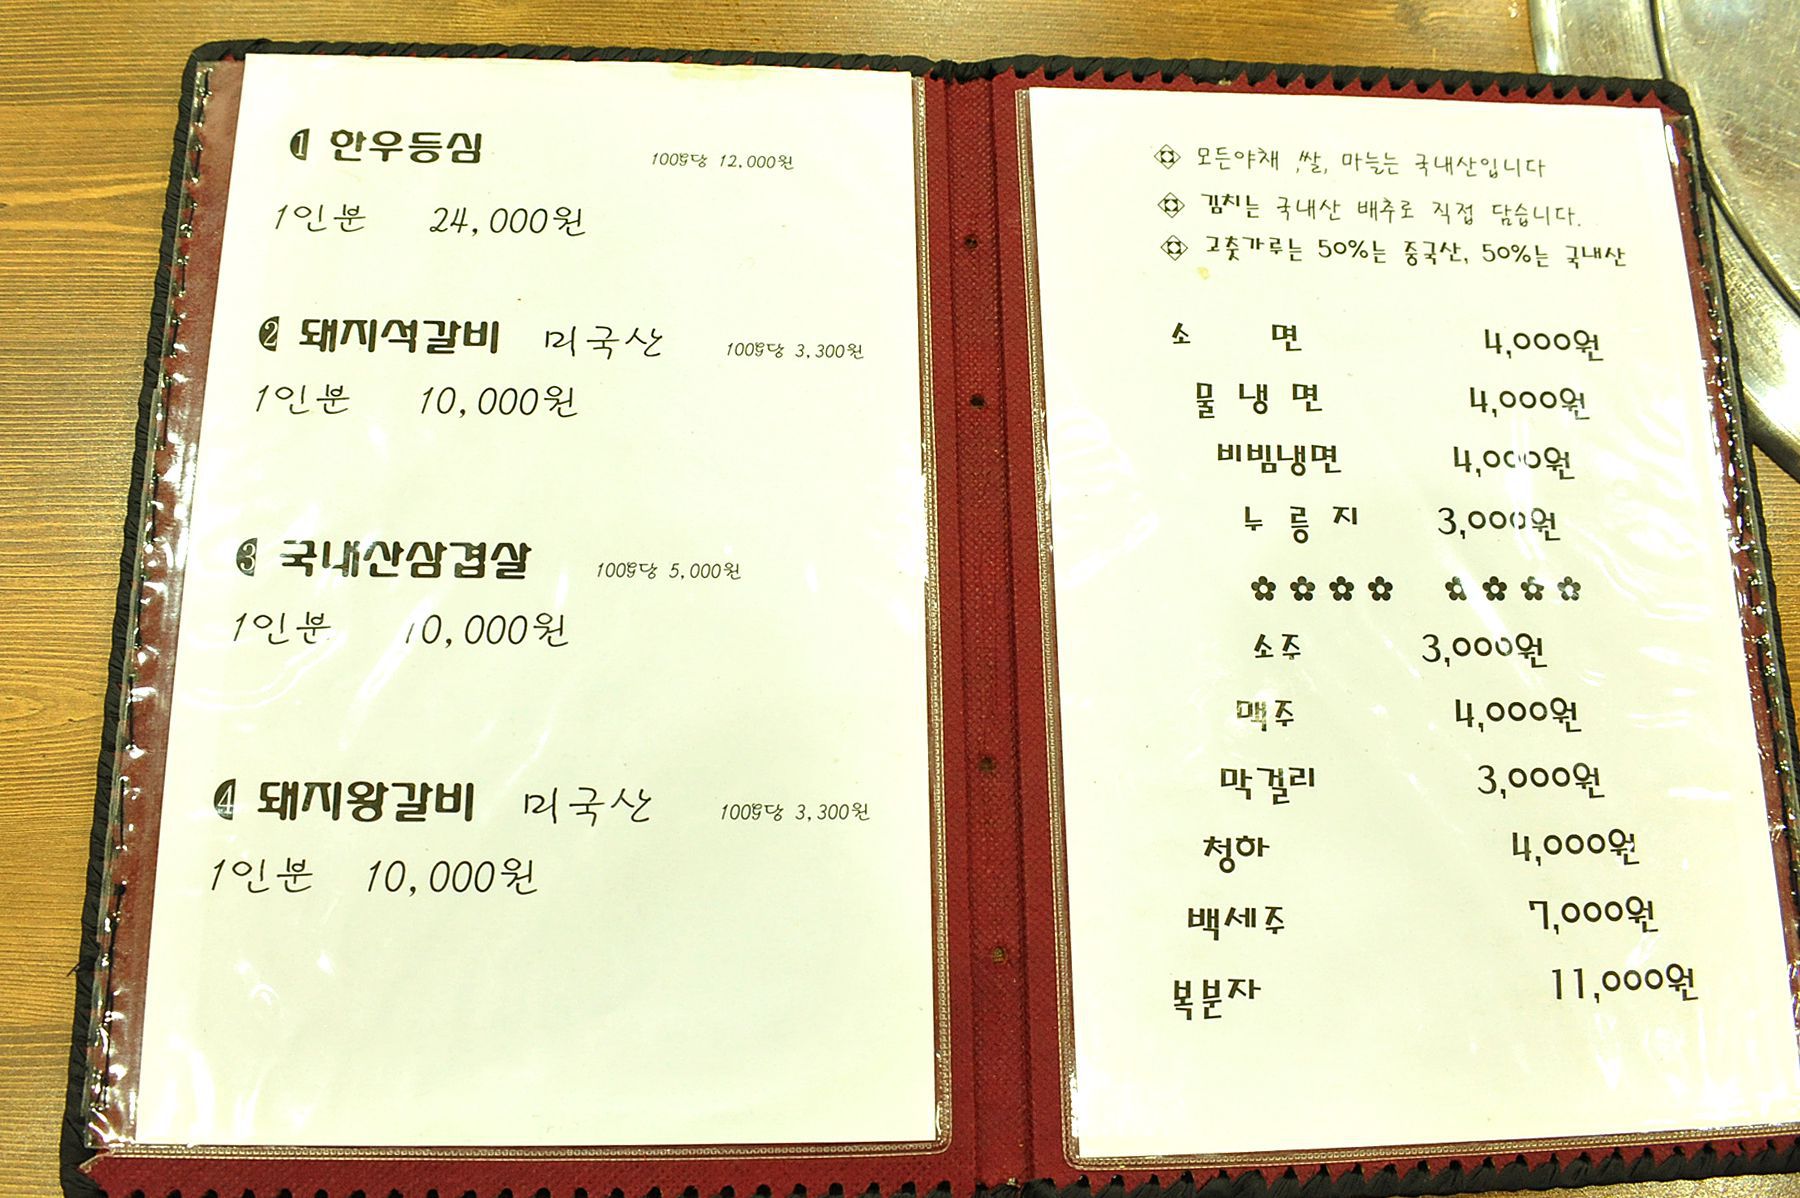 1 한우등심 100g당 12,000원
1인분 24,000원
2 돼지석갈비 미국산 100g당 3,300원
1인분 10,000원
3 국내산삼겹살 100g당 5,000원
1인분 10,000원
4 돼지왕갈비 미국산 100g당 3,300원
1인분 10,000원
모든야채 ,쌀, 마늘는 국내산입니다
김치는 국내산 배추로 직접 담습니다.
고춧가루는 50%는 중국산, 50%는 국내산
소 면 4,000원
물 냉 면 4,000원
비빔냉면 4,000원
누 릉 지 3,000원
소주 3,000원
맥주 4,000원
막걸리 3,000원
청하 4,000원
백세주 7,000원
복분자 11,000원